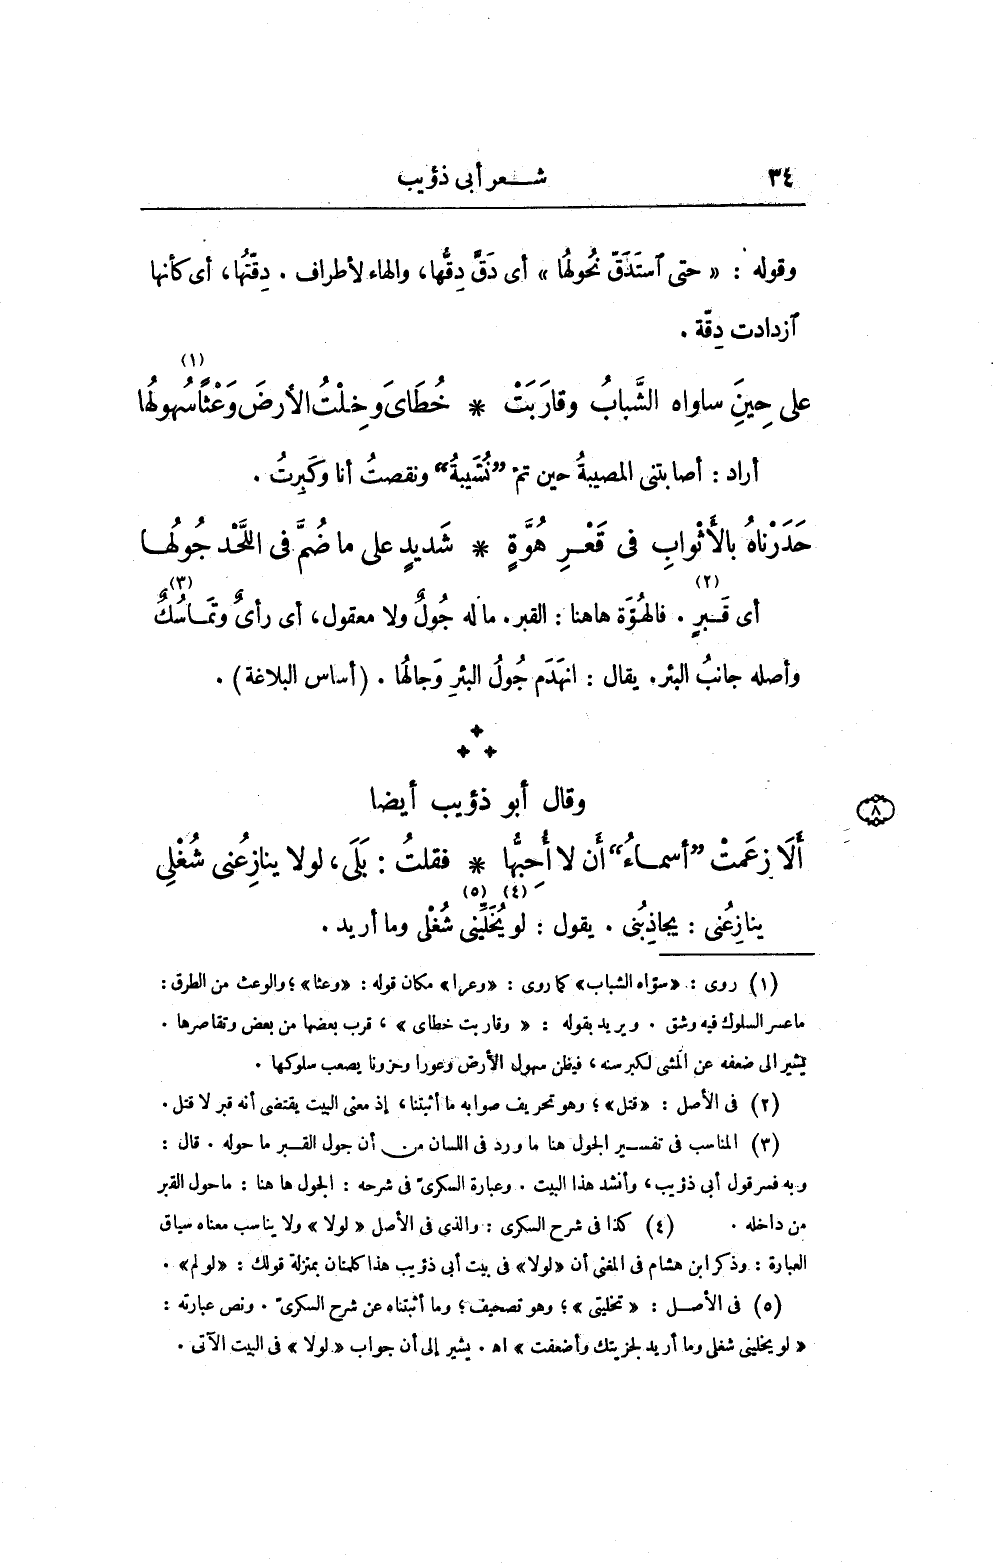 ٣٤
شعر أبى ذؤيب
وقوله : « حتى ٱستَدَقّ نُحولهُا » أى دَقَّ دِقُّها، والهاء لأطراف . دِقّتُها، أى كأنها
ٱزدادت دِقّة .
(١)
على حِينَِ ساواه الشَّبابُ وقارَبَتْ * خُطَاىَ وخِلْتُ الأرضَ وَعْثًا سُهولهُا
أراد : أصابتنى المصيبةُ حين تمّ ”نُشَيبةُ“ ونقصتُ أنا وكَبِرتُ .
حَدَرْناهُ بالأَثْوابِ فى قَعْرِ هُوَّةٍ * شَديدٍ على ما ضُمَّ فى اللَّحْدِ جُولهُا
(٢) (٣)
أى قَبرٍ . فالهُوّة هاهنا : القبر. ماله جُولٌ ولا معقول، أى رأىٌ وتَماسُكٌ
وأصله جانبُ البئر. يقال : انهَدَم جُولُ البئرِ وَجالهُا . (أساس البلاغة) .
وقال أبو ذؤيب أيضا
٨
أَلَا زعَمتْ ”أسماءُ“ أَن لا أُحِبُّها * فقلتُ : بَلَى، لولا ينازِعُنى شُغْلِى
(٤) (٥)
ينازِعُنى : يجاذِبُنى . يقول : لو يُخَلِّينى شُغْلى وما أريد .
(١) روى : «سوّاه الشباب» كما روى : «وعرا» مكان قوله : «وعثا» ؛ والوعث من الطرق :
ما عسر السلوك فيه وشق . ويريد بقوله : « وقاربت خطاى » ، قرب بعضها من بعض وتقاصرها .
يشير الى ضعفه عن المشى لكبر سنه ، فيظن سهول الأرض وعورا وحزونا يصعب سلوكها .
(٢) فى الأصل : «قتل» ؛ وهو تحريف صوابه ما أثبتنا، إذ معنى البيت يقتضى أنه قبر لا قتل .
(٣) المناسب فى تفسير الجول هنا ما ورد فى اللسان من أن جول القبر ما حوله . قال :
وبه فسر قول أبى ذؤيب، وأنشد هذا البيت . وعبارة السكرىّ فى شرحه : الجول ها هنا : ما حول القبر
من داخله . (٤) كذا فى شرح السكرى : والذى فى الأصل « لولا » ولا يناسب معناه سياق
العبارة : وذكر ابن هشام فى المغنى أن «لولا» فى بيت أبى ذؤيب هذا كلمتان بمنزلة قولك : «لو لم» .
(٥) فى الأصل : « تخليتى » ؛ وهو تصحيف؛ وما أثبتناه عن شرح السكرىّ . ونص عبارته :
« لو يخلينى شغلى وما أريد لجزيتك وأضعفت » اه . يشير إلى أن جواب « لولا » فى البيت الآتى .